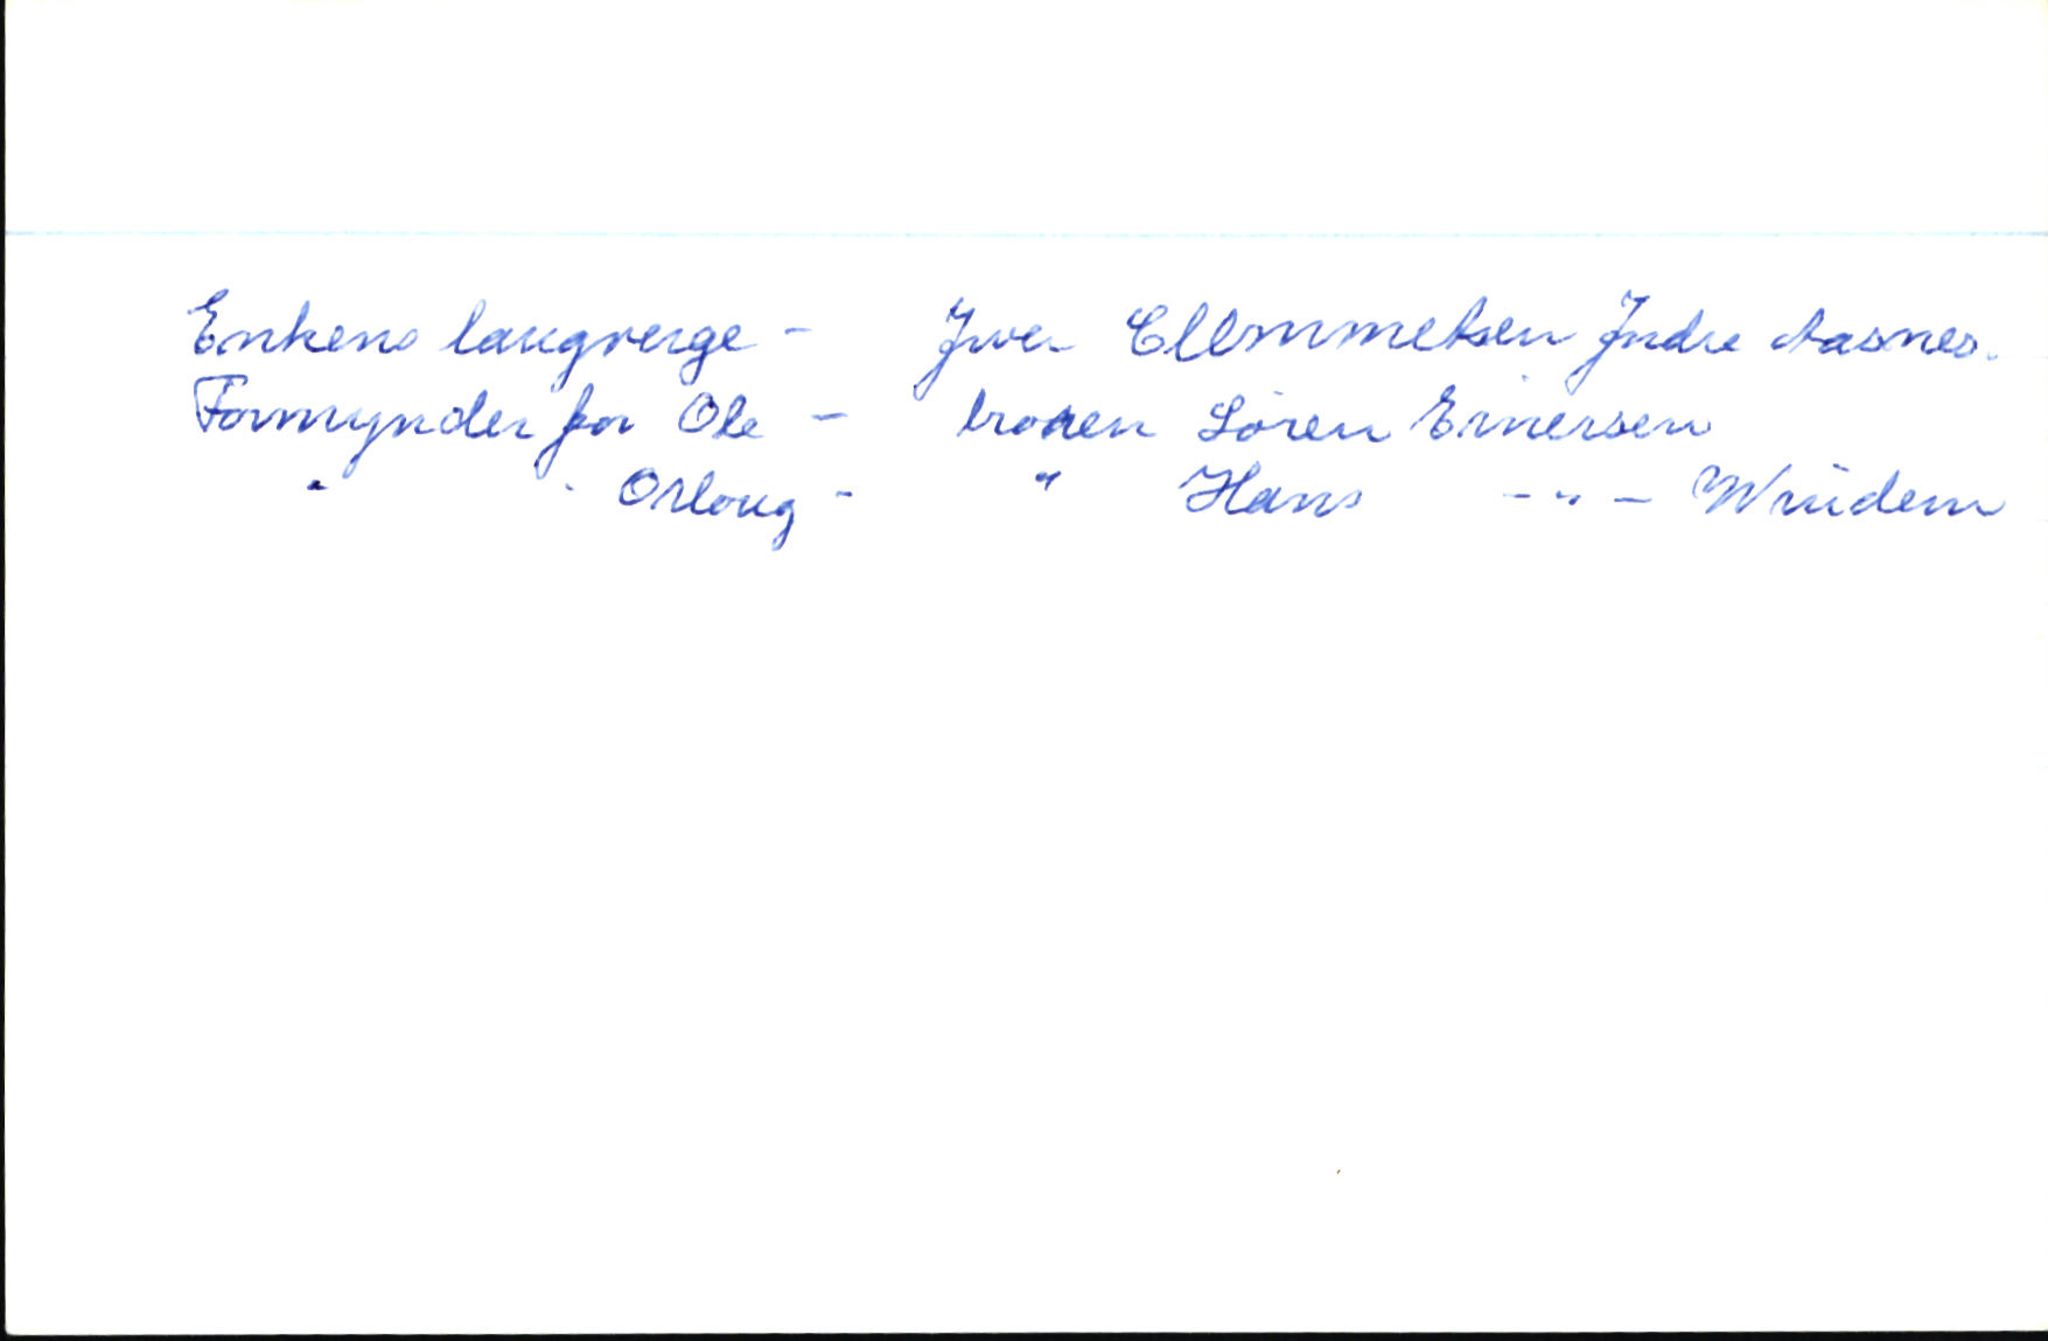 Enkens laugverge - Iver Clemmetsen Indre Aasnes.
Formynder for Ole - broren Søren Einersen
" " Osloug - " Hans - " -